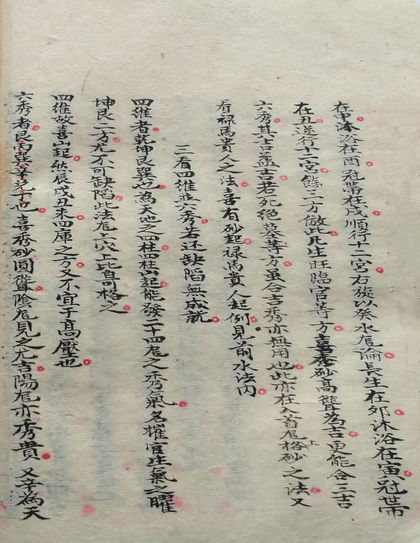 在申沐浴在酉冠帶在戌順行十二宮右旋以癸水龍論長生在卯沐浴在寅冠帶
在丑逆行十二宮餘二方倣此凡生旺臨官等方喜秀砂高聳為吉更能合三吉
六秀其吉益吉若死絕衰等方雖合吉秀亦無用也此亦在入首龍上格砂之法又
看祿馬貴人之法喜有砂起祿馬貴人起例見前水法內
三看四維並六秀若还缺陷無成就
四維者乾坤艮巽也為天地之柱四柱起能發二十四龍之秀氣名催官生氣之曜
坤艮二方尤不可缺陷此法龍穴上皆可格之
四維故喜山起然辰戌丑未四庫之方又不宜于高壓也
六秀者艮丙巽辛兌丁也喜秀砂圓聳陰龍見之尤吉陽龍亦秀貴又辛為天